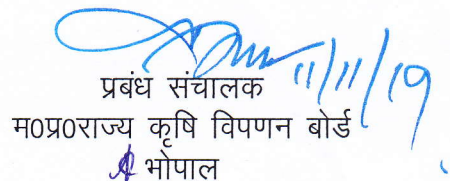 11/11/19
प्रबंध संचालक
म0प्र0राज्य कृषि विपणन बोर्ड
भोपाल